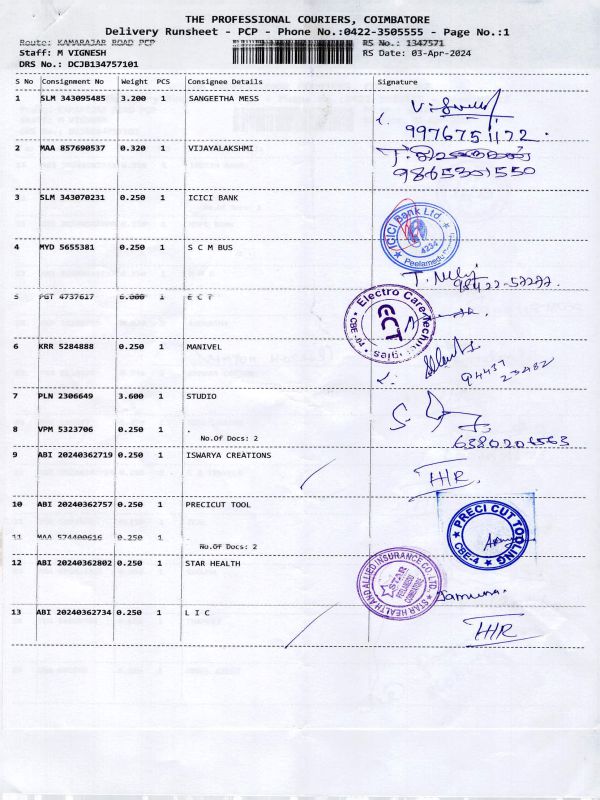 THE PROFESSIONAL COURIERS, COIMBATORE
Delivery Runsheet - PCP - Phone No.:0422-3505555 - Page No.:1
Route: KAMARAJAR ROAD PCP RS No.: 1347571
Staff: M VIGNESH RS Date: 03-Apr-2024
DRS No.: DCJB134757101
S No Consignment No Weight PCS Consignee Details Signature
1 SLM 343095485 3.200 1 SANGEETHA MESS
9976751172.
2 MAA 857690537 0.320 1 VIJAYALAKSHMI
9865301550
3 SLM 343070231 0.250 1 ICICI BANK
ICICI Bank Ltd.
4234
4 MYD 5655381 0.250 1 S C M BUS
98422-52272.
5 PGT 4737617 6.000 1 E C T
Electro Care Technologies
ECT
6 KRR 5284888 0.250 1 MANIVEL
94437
23482
7 PLN 2306649 3.600 1 STUDIO
8 VPM 5323706 0.250 1 .
No.Of Docs: 2
6380206563
9 ABI 20240362719 0.250 1 ISWARYA CREATIONS
10 ABI 20240362757 0.250 1 PRECICUT TOOL
PRECI CUT TOOLING
CBE-4
11 MAA 574400616 0.250 1 .
No.Of Docs: 2
12 ABI 20240362802 0.250 1 STAR HEALTH
STAR HEALTH AND ALLIED INSURANCE CO. LTD.
STAR
PEELAMEDU
COIMBATORE
Jamuna.
13 ABI 20240362734 0.250 1 L I C